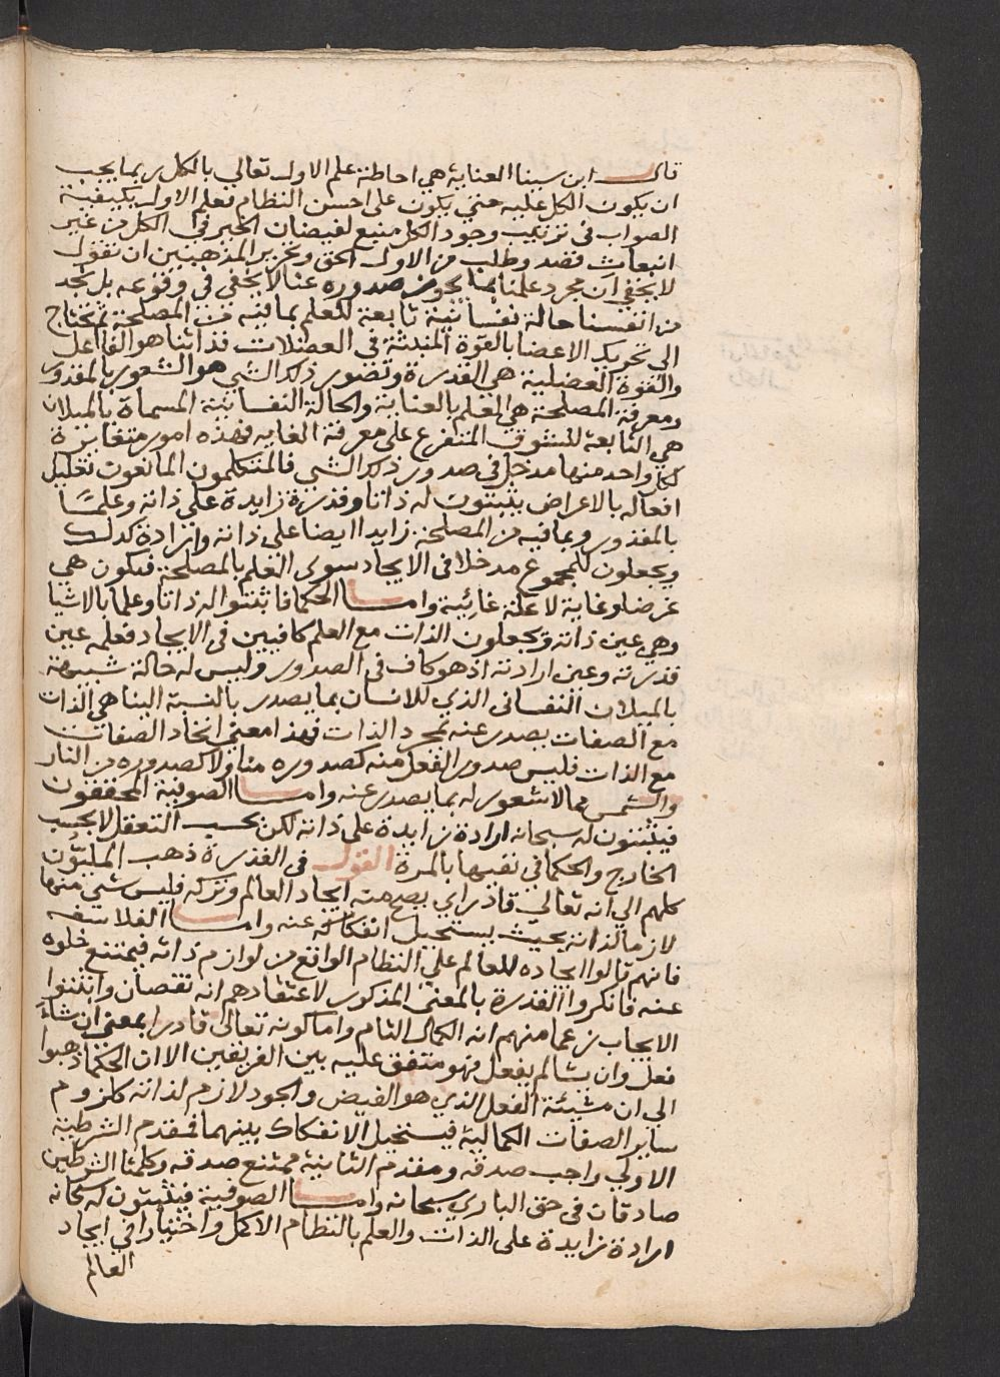 قال ابن سينا العناية هي احاطة علم الاول تعالي بالكل وبما يجب
ان يكون الكل عليه حتي يكون علي احسن النظام فعلم الاول بكيفية
الصواب في ترتيب وجود الكل منبع لفيضان الخير في الكل من غير
انبعاث قصد وطلب من الاول الحق وتحرير المذهبين ان نقول
لا يخفي ان مجرد علمنا بما يجوز صدوره عنا لا يكفي في وقوعه بل نجد
من انفسنا حالة نفسانية تابعة للعلم بما فيه من المصلحة ثم نحتاج
الي تحريك الاعضا بالقوة المنبثة في العضلات فذاتنا هو الفاعل
والقوة العضلية هي القدرة وتصور ذلك الشي هو الشعور بالمقدور
ومعرفة المصلحة هي العلم بالعناية والحالة النفسانية المسماة بالميلان
هي التابعة للشوق المتفرع علي معرفة الغايه فهذه امور متغايرة
لكل واحد منها مدخل في صدور ذلك الشي فالمتكلمون المانعون تعليل
افعاله بالاعراض يثبتون له ذاتا وقدرة زايدة علي ذاته وعلمًا
بالمقدور وبما فيه من المصلحة زايدا ايضا علي ذاته وارادة كذلك
ويجعلون للمجموع مدخلا في الايجاد سوي العلم بالمصلحة فتكون هي
غرضا وغاية لا علة غائية واما الحكما فاثبتوا له ذاتا وعلما بالاشيا
وهي عين ذاته ويجعلون الذات مع العلم كافيين في الايجاد فعلمه عين
قدرته وعين ارادته اذ هو كاف في الصدور وليس له حالة شبيهة
بالميلان النفساني الذي للانسان بما يصدر بالنسبة الينا هي الذات
مع الصفات يصدر عنه بمجرد الذات فهذا معني اتحاد الصفات
مع الذات فليس صدور الفعل منه كصدوره منا ولا كصدوره من النار
والشمس مما لا شعور له بما يصدر عنه واما الصوفية المحققون
فيثبتون له سبحانه ارادة زايدة علي ذاته لكن بحسب التعقل لا بحسب
الخارج والحكما في نفيها بالمرة القول في القدرة ذهب المليّون
كلهم الي انه تعالي قادر اي يصح منه ايجاد العالم وتركه فليس شي منهما
لازما لذاته بحيث يستحيل انفكاكه عنه واما الفلاسفه
فانهم قالوا ايجاده للعالم علي النظام الواقع من لوازم ذاته فيمتنع خلوه
عنه فانكروا القدرة بالمعني المذكور لاعتقادهم انه نقصان واثبتوا
الايجاب زعما منهم انه الكمال التام واما كونه تعالي قادرا بمعني ان شاء
فعل وان يشا لم يفعل فهو متفق عليه بين الفريقين الا ان الحكما ذهبوا
الي ان مشيئة الفعل الذي هو الفيض والجود لازم لذاته كلزوم
ساير الصفات الكمالية فيستحيل الانفكاك بينهما فمقدم الشرطية
الاولي واجب صدقه ومقدم الثانية ممتنع صدقه وكلتا الشرطين
صادقات في حق الباري سبحانه واما الصوفية فيثبتون له سبحانه
ارادة زايدة علي الذات والعلم بالنظام الاكمل واختيارا في ايجاد
العالم